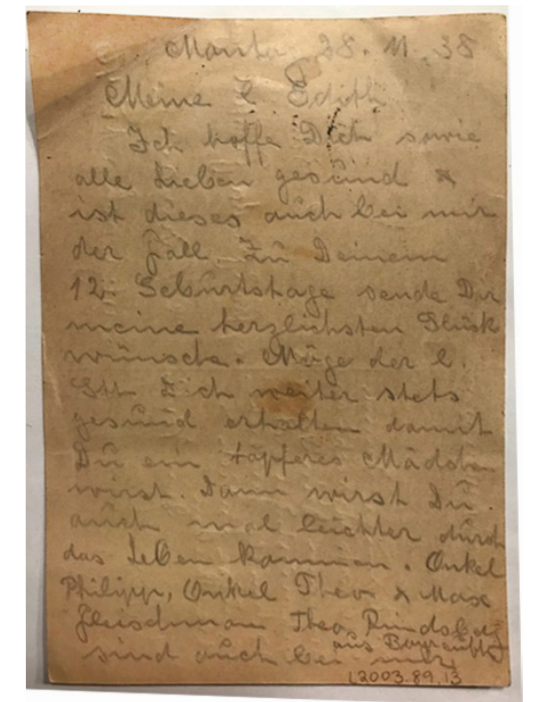 Montag 28. 11. 38
Meine l. Edith
Ich hoffe Dich sowie
alle Lieben gesund &
ist dieses auch bei mir
der Fall. Zu Deinem
12. Geburtstage sende Dir
meine herzlichsten Glück
wünsche. Möge der l.
Gtt Dich weiter stets
gesund erhalten damit
Du ein tapferes Mädchen
wirst. Dann wirst Du
auch mal leichter durch
das Leben kommen. Onkel
Philipp, Onkel Theo & Max
Fleischman Theo Rindsberg
aus Bayreuth
sind auch bei mir
L2003.89.13